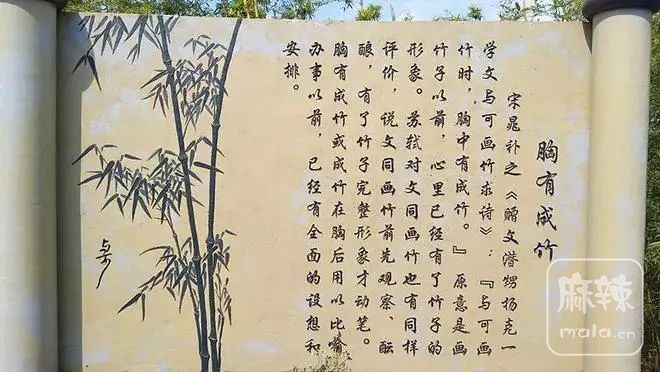 胸有成竹
宋晁补之《赠文潜甥杨克一
学文与可画竹求诗》:『与可画
竹时,胸中有成竹。』原意是画
竹子以前,心里已经有了竹子的
形象。苏轼对文同画竹也有同样
评价,说文同画竹前先观察、酝
酿,有了竹子完整形象才动笔。
胸有成竹或成竹在胸后用以比喻
办事以前,已经有全面的设想和
安排。
麻辣
mala.cn